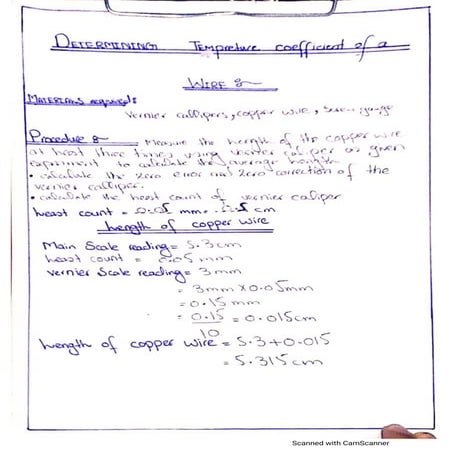 DETERMINING Temprature coefficient of a
WIRE :-
MATERIALS required:
Vernier callipers, copper wire, Screw gauge
Procedure :- Measure the length of the copper wire
at least three times using vernier caliper as given
experiment to calculate the average length
• calculate the zero error and zero correction of the
vernier calliper.
• calculate the least count of vernier caliper
least count = mm = cm
Length of copper wire
Main Scale reading = 5.3cm
least count = 0.05 mm
vernier Scale reading = 3mm
= 3mm X 0.05mm
= 0.15 mm
= 0.15 = 0.015cm
10
Length of copper wire = 5.3+0.015
= 5.315cm
Scanned with CamScanner